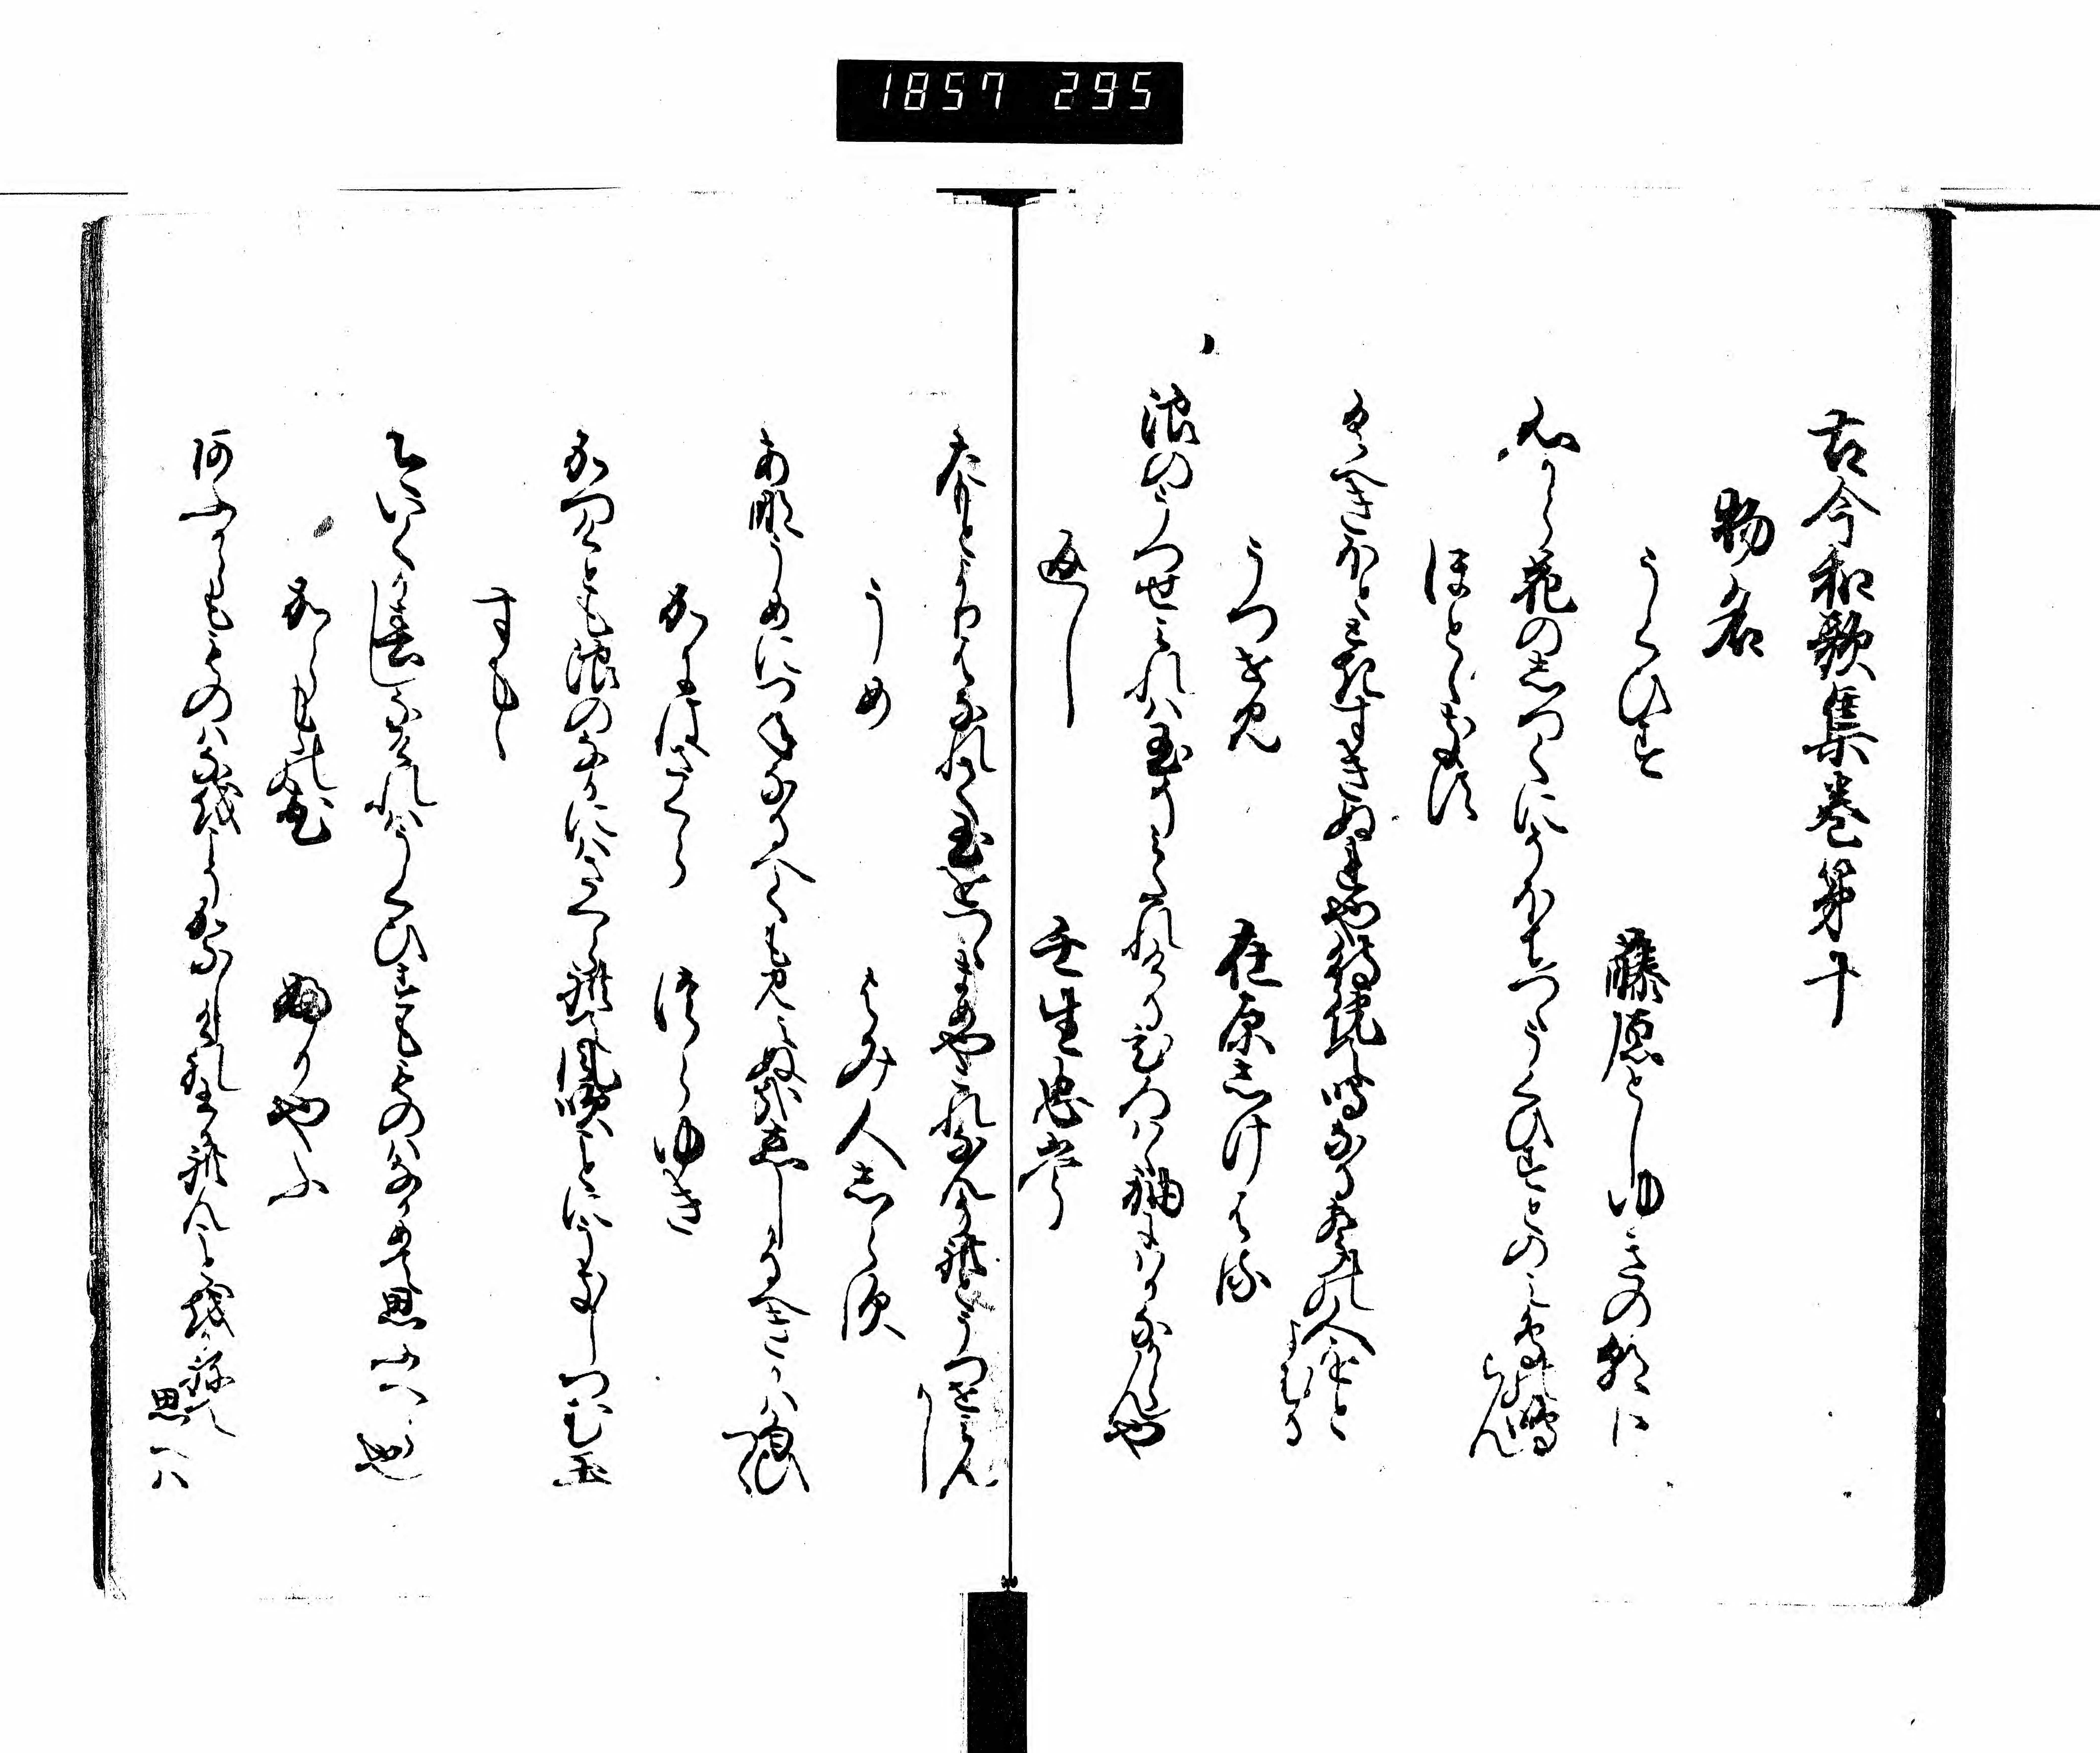 1857 295
古今和歌集巻第十
物名
うくひす　藤原としゆきの朝臣
心から花のしつくにそほちつゝうくひすとのみ鳥の鳴らん
ほとゝきす
くへきほとときすきぬれや待わひて鳴なるこゑの人をとよむる
うつせみ　在原しけはる
浪のうつせみれは玉そみたれけるひろはゝ袖にはかなからんや
返し　壬生忠岑
たもとよりはなれて玉をつゝまめやこれなんそれとうつせみんかし
うめ　よみ人しらす
あな うめにつねなるへくも見えぬ哉こひしかるへきかは
かにはさくら　つらゆき
かつけとも浪のなかにはさくられて風吹ことにうきしつむ玉
すもゝの花
いまいくか春しなけれはうくひすもものはなかめて思ふへら也
からもゝの花　ふかやふ
あふからもものはなをこそかなしけれわかれん事をかねて思へは